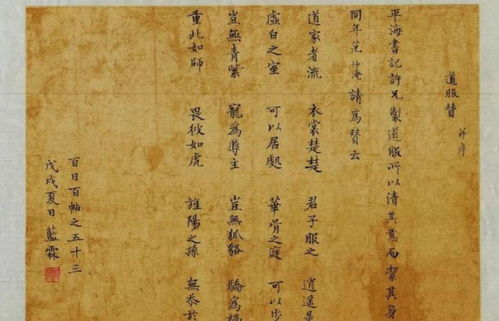 道服贊 并序
平海書記許兄製道服所以清其意而潔其身
同年范仲淹請為贊云
道家者流 衣裳楚楚 君子服之 逍遙是
虛白之室 可以居處 華胥之庭 可以步
豈無青紫 寵為辱主 豈無狐貉 驕為禍
重此如師 畏彼如虎 旌陽之孫 無忝於
百日百帖之五十三
戊戌夏日 藍霖